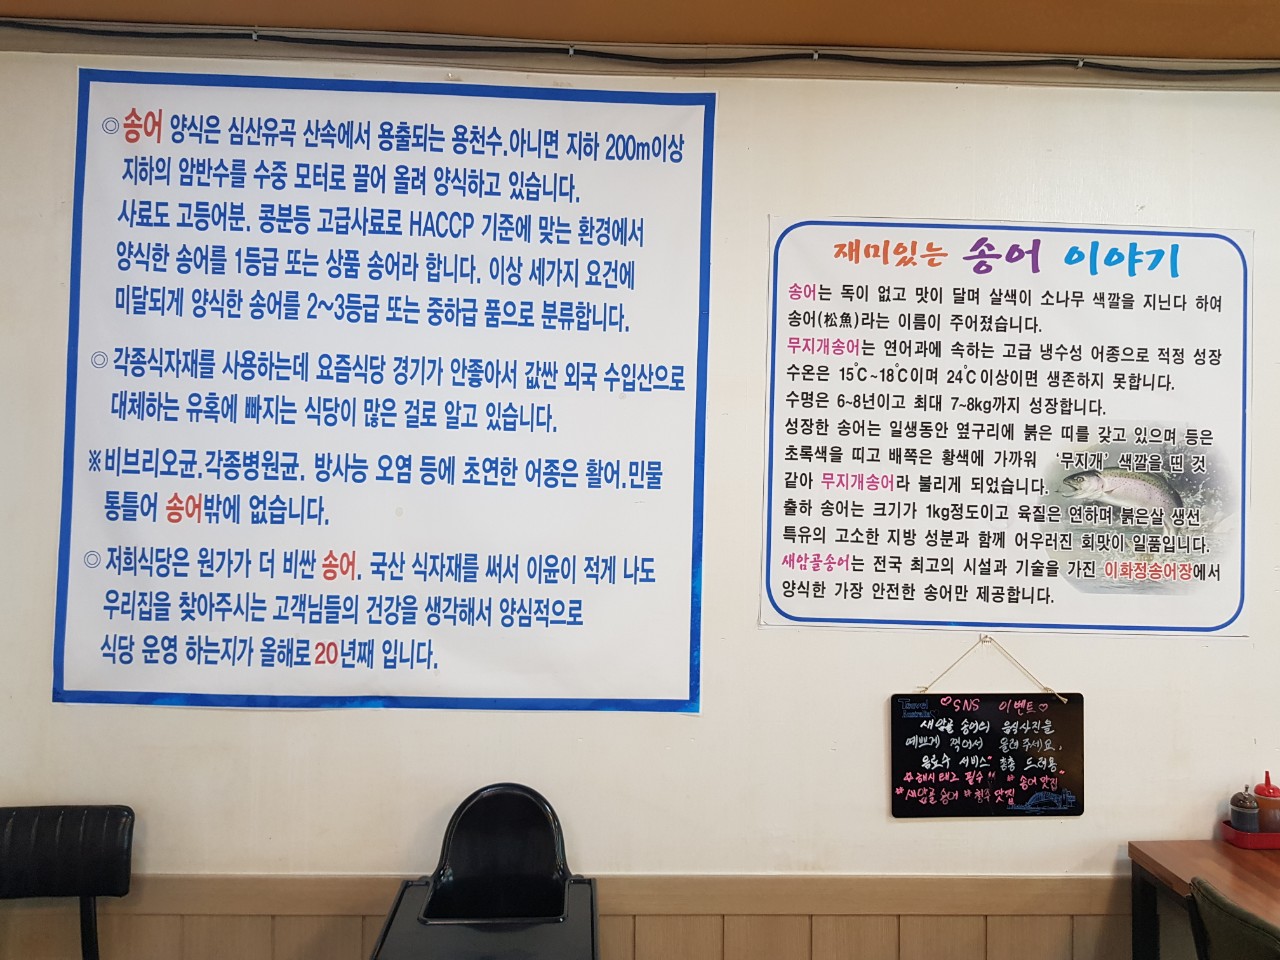 ◎송어 양식은 심산유곡 산속에서 용출되는 용천수.아니면 지하 200m이상
지하의 암반수를 수중 모터로 끌어 올려 양식하고 있습니다.
사료도 고등어분. 콩분등 고급사료로 HACCP 기준에 맞는 환경에서
양식한 송어를 1등급 또는 상품 송어라 합니다. 이상 세가지 요건에
미달되게 양식한 송어를 2~3등급 또는 중하급 품으로 분류합니다.
◎ 각종식자재를 사용하는데 요즘식당 경기가 안좋아서 값싼 외국 수입산으로
대체하는 유혹에 빠지는 식당이 많은 걸로 알고 있습니다.
※비브리오균.각종병원균. 방사능 오염 등에 초연한 어종은 활어.민물
통틀어 송어밖에 없습니다.
◎ 저희식당은 원가가 더 비싼 송어. 국산 식자재를 써서 이윤이 적게 나도
우리집을 찾아주시는 고객님들의 건강을 생각해서 양심적으로
식당 운영 하는지가 올해로20년째 입니다.
재미있는 송어 이야기
송어는 독이 없고 맛이 달며 살색이 소나무 색깔을 지닌다 하여
송어(松魚)라는 이름이 주어졌습니다.
무지개송어는 연어과에 속하는 고급 냉수성 어종으로 적정 성장
수온은 15℃~18℃이며 24℃이상이면 생존하지 못합니다.
수명은 6~8년이고 최대 7~8kg까지 성장합니다.
성장한 송어는 일생동안 옆구리에 붉은 띠를 갖고 있으며 등은
초록색을 띠고 배쪽은 황색에 가까워 '무지개' 색깔을 띤 것
같아 무지개송어라 불리게 되었습니다.
출하 송어는 크기가 1kg정도이고 육질은 연하며 붉은살 생선
특유의 고소한 지방 성분과 함께 어우러진 회맛이 일품입니다.
새암골송어는 전국 최고의 시설과 기술을 가진 이화정송어장에서
양식한 가장 안전한 송어만 제공합니다.
♡SNS 이벤트♡
새암골 송어의 음식사진을
예쁘게 찍어서 올려주세요.
음료수 서비스" 총총 드려용
해시태그 필수!! #송어맛집
#새암골송어 #청주맛집